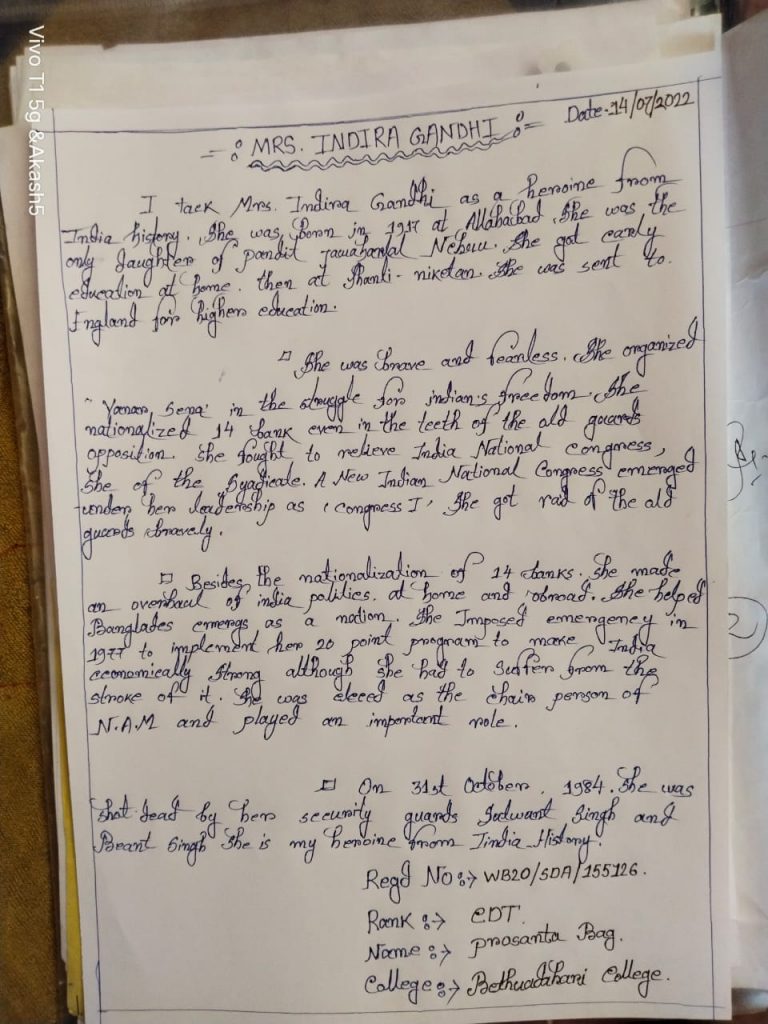 Vivo T1 5g &Akash5
Date-14/07/2022
MRS. INDIRA GANDHI
I taek Mrs. Indira Gandhi as a heroine from
India history. She was born in 1917 at Allahabad. She was the
only daughter of pandit Jawaharlal Nehuu. She got early
education at home. then at Shanti-niketan. She was sent to
England for higher education.
She was brave and fearless. She organized
"Vanar Sena' in the struggle for indian's freedom. She
nationalized 14 bank even in the teeth of the old guards
opposition. She fought to relieve India National congress,
She of the Syadicale. A New Indian National Congress emerged
under her leadership as 'congress I' She got rad of the old
guards bravely.
Besides the nationalization of 14 banks. She made
an overhaul of india politics. at home and obroad. She helped
Banglades emergs as a nation. She Imposed emergency in
1977 to implement her 20 point program to make India
economically strong although she had to suffer from the
stroke of it. She was eleced as the chair person of
N.A.M and played an importent role.
On 31st October, 1984. She was
shot dead by her security guards Satwant Singh and
Beant Singh She is my heroine from Jindia History.
Regd No:→ WB20/SDA/155126.
Rank :→ CDT.
Name :→ prosanta Bag.
College:→ Bethuadahari College.